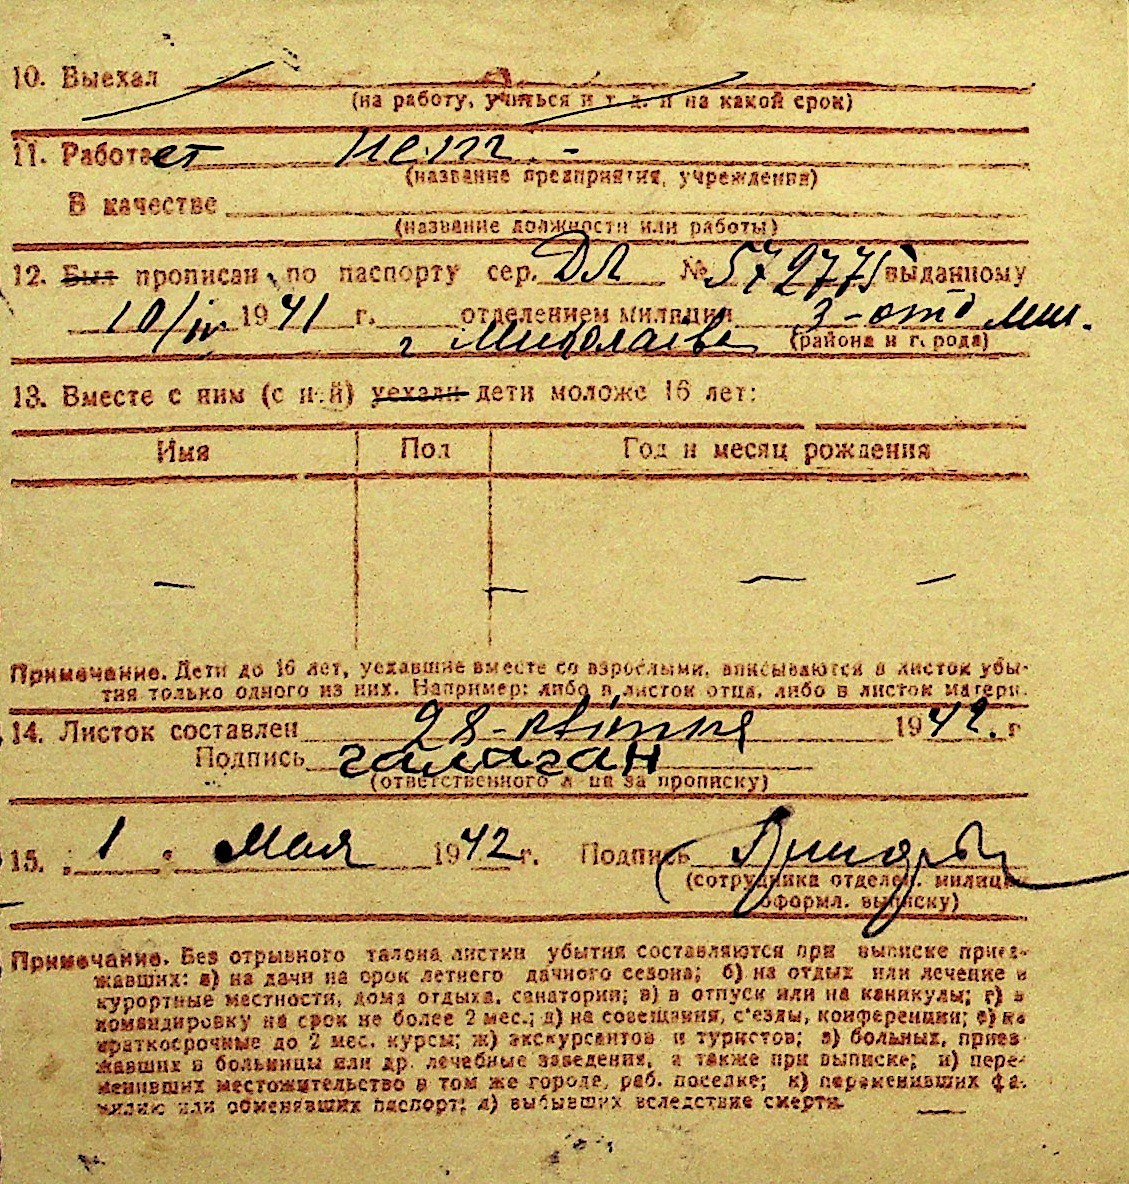 10. Выехал
(на работу, учиться и т. д. и на какой срок)
11. Работает нет. -
(название предприятия, учреждения)
В качестве
(название должности или работы)
12. Был прописан по паспорту сер. ДЛ № 572775 выданному
10/IV 1941 г. отделением милиции 3-отд мил.
г Миколаєва (района и города)
13. Вместе с ним (с ней) уехали дети моложе 16 лет:
Имя Пол Год и месяц рождения
— — — —
Примечание. Дети до 16 лет, уехавшие вместе со взрослыми, вписываются в листок убы-
тия только одного из них. Например: либо в листок отца, либо в листок матери.
14. Листок составлен 28-квітня 1942. г
Подпись галаган
(ответственного лица за прописку)
15. 1 мая 1942 г. Подпись
(сотрудника отделен. милиции
оформл. выписку)
Примечание. Без отрывного талона листки убытия составляются при выписке приез-
жавших: а) на дачи на срок летнего дачного сезона; б) на отдых или лечение в
курортные местности, дома отдыха, санатории; в) в отпуск или на каникулы; г) в
командировку на срок не более 2 мес.; д) на совещания, с'езды, конференции; е) на
краткосрочные до 2 мес. курсы; ж) экскурсантов и туристов; з) больных, приез-
жавших в больницы или др. лечебные заведения, а также при выписке; и) пере-
менивших местожительство в том же городе, раб. поселке; к) переменивших фа-
милию или обменявших паспорт; л) выбывших вследствие смерти.